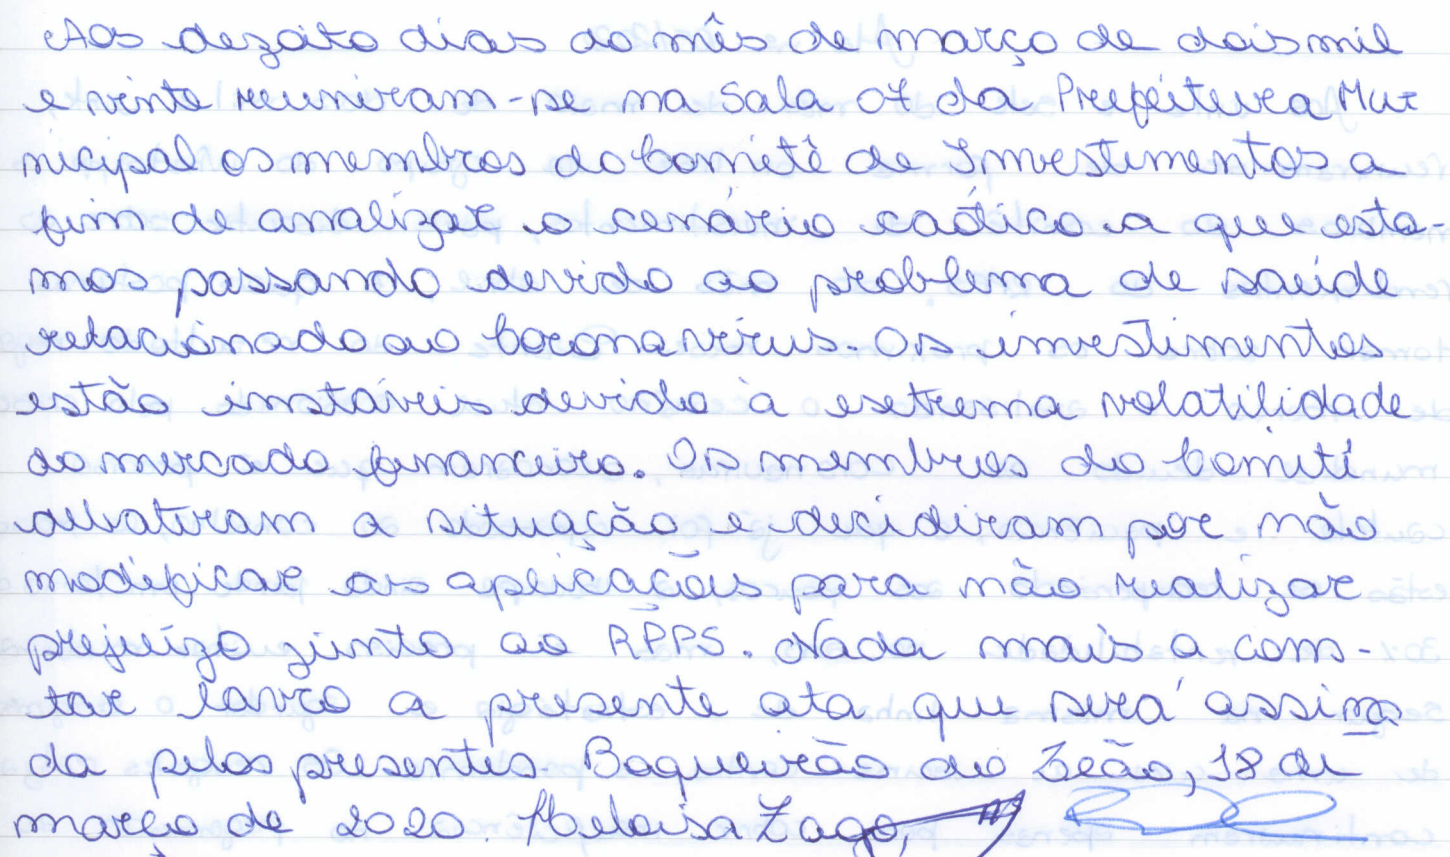 Aos dezoito dias do mês de março de dois mil
e vinte reuniram-se na Sala 07 da Prefeitura Mu
nicipal os membros do Comitê de Investimentos a
fim de analizar o cenário caótico a que esta-
mos passando devido ao problema de saúde
relacionado ao Coronavírus. Os investimentos
estão instáveis devido à extrema volatilidade
do mercado financeiro. Os membros do Comitê
debateram a situação e decidiram por não
modificar as aplicações para não realizar
prejuízo junto ao RPPS. Nada mais a cons-
tar lavro a presente ata que será assina
da pelos presentes. Boqueirão do Leão, 18 de
março de 2020. Heloisa Zago,